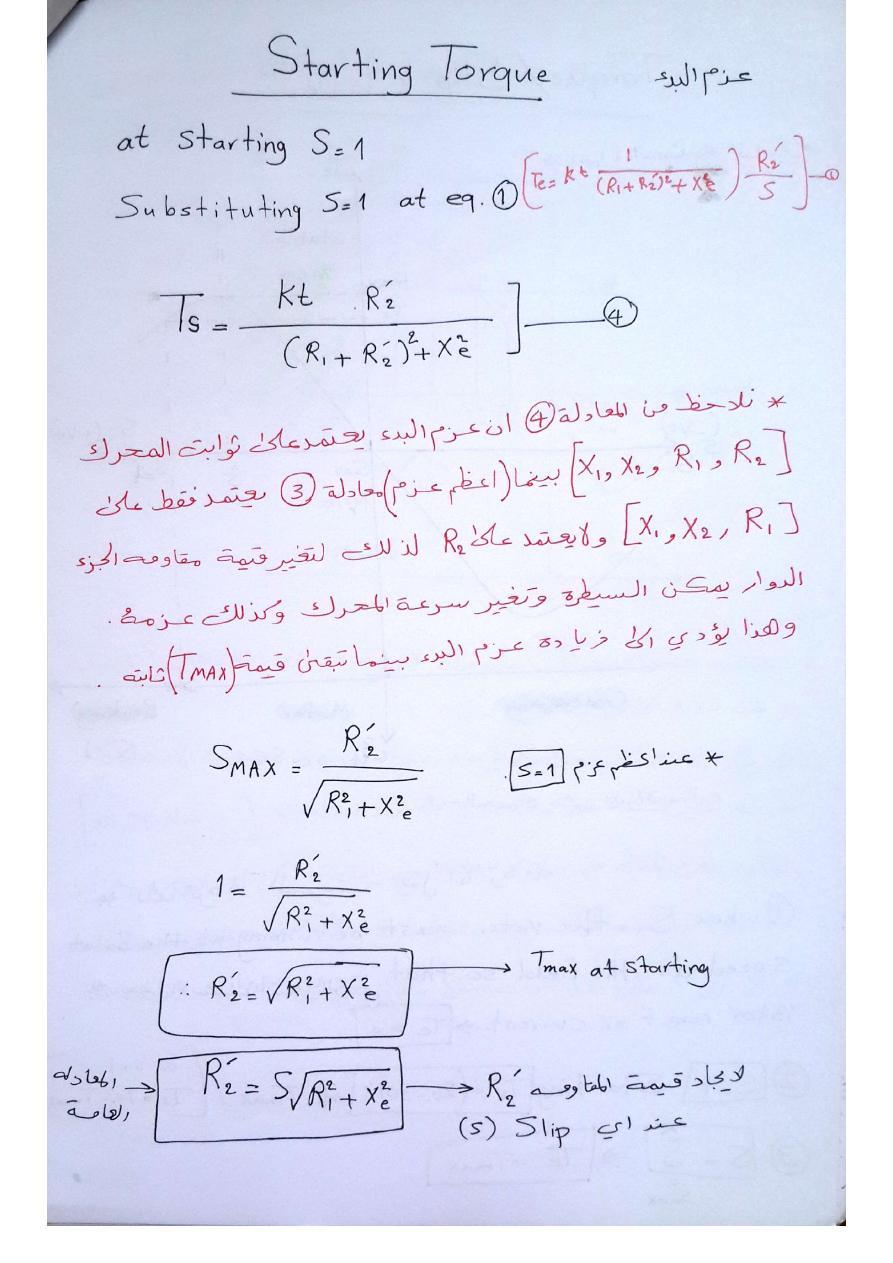 Starting Torque عزم البدء
at starting S=1
Substituting S=1 at eq. ① [Te = Kt (1 / ((R₁+R₂′)²+Xe²)) R₂′/S] — ①
Ts = Kt R₂′ / ((R₁ + R₂′)² + Xe²) ] — ④
* نلاحظ من المعادلة ④ ان عزم البدء يعتمد على ثوابت المحرك
[X₁, X₂, R₁, R₂] بينما (اعظم عزم) معادلة ③ يعتمد فقط على
[X₁, X₂, R₁] ولا يعتمد على R₂ لذلك لتغير قيمة مقاومه الجزء
الدوار يمكن السيطرة وتغير سرعة المحرك وكذلك عزمه.
وهذا يؤدي الى زيادة عزم البدء بينما تبقى قيمة (TMAX) ثابته.
* عند اعظم عزم S=1
SMAX = R₂′ / √(R₁² + Xe²)
1 = R₂′ / √(R₁² + Xe²)
∴ R₂′ = √(R₁² + Xe²) → Tmax at starting
المعادله العامة → R₂′ = S√(R₁² + Xe²) → لايجاد قيمة المقاومه R₂′
عند اي Slip (S)